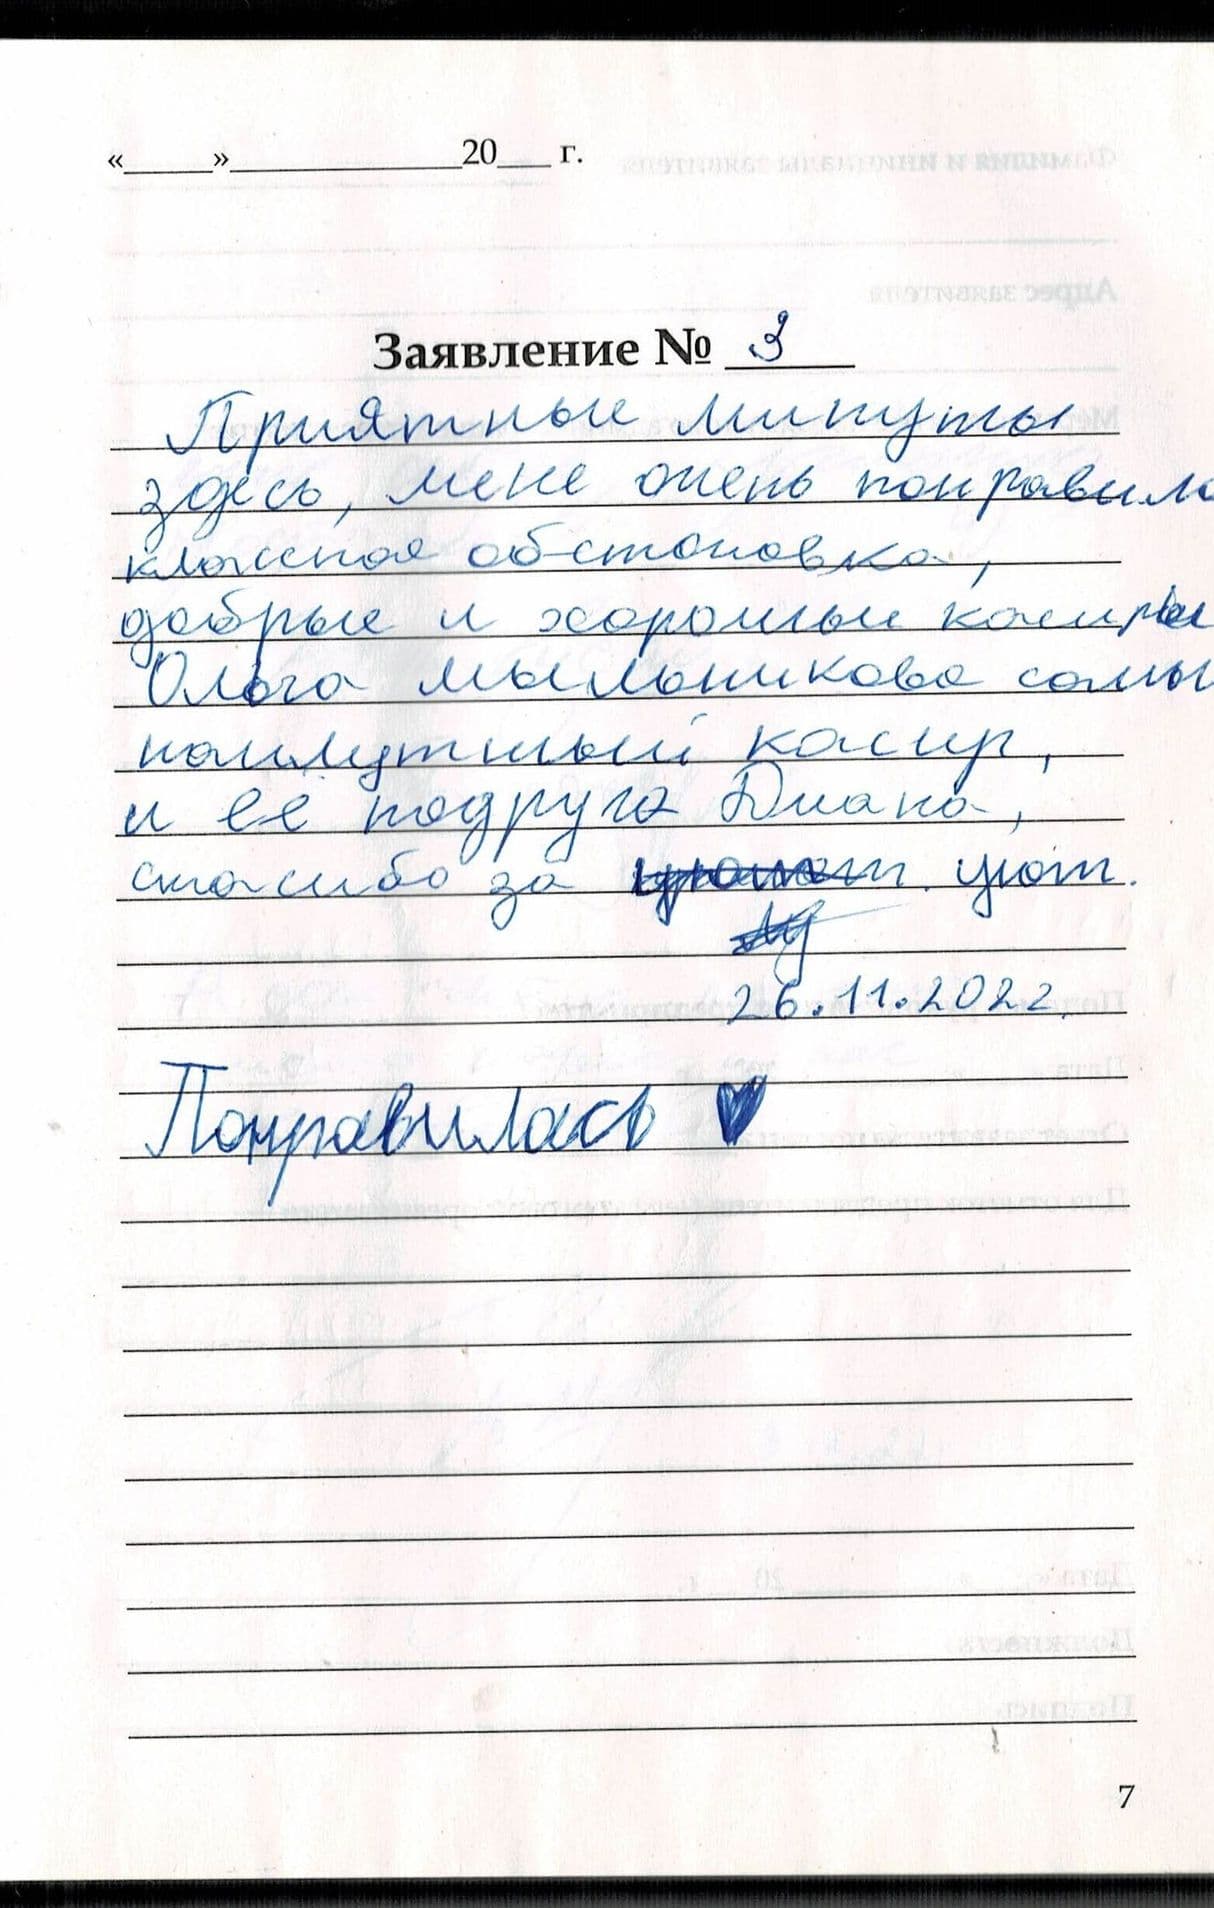 «____»____________20___ г.
Заявление № 3
Приятные минуты
здесь, мене очень понравила
классная обстановка,
добрые и хорошые касиры
Ольга мыльникова самы
наилутшый касир,
и ее подруга Диана,
спасибо за уют.
26.11.2022
Понравилась ♥
7